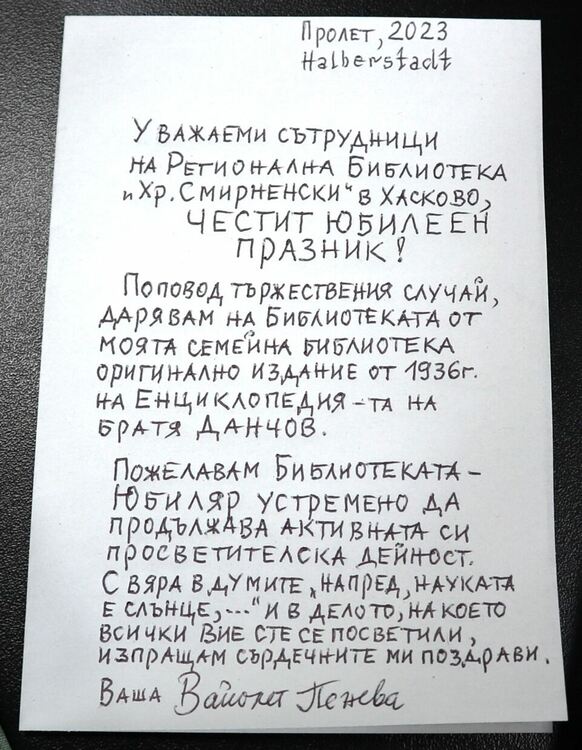 Пролет, 2023
Halberstadt
Уважаеми сътрудници
на Регионална Библиотека
„Хр. Смирненски“ в Хасково,
ЧЕСТИТ ЮБИЛЕЕН
ПРАЗНИК!
По повод тържествения случай,
дарявам на Библиотеката от
моята семейна библиотека
оригинално издание от 1936г.
на Енциклопедия-та на
братя Данчов.
Пожелавам Библиотеката-
Юбиляр устремено да
продължава активната си
просветителска дейност.
С вяра в думите „напред, науката
е слънце,...“ и в делото, на което
всички Вие сте се посветили,
изпращам сърдечните ми поздрави.
Ваша Вайолет Пенева